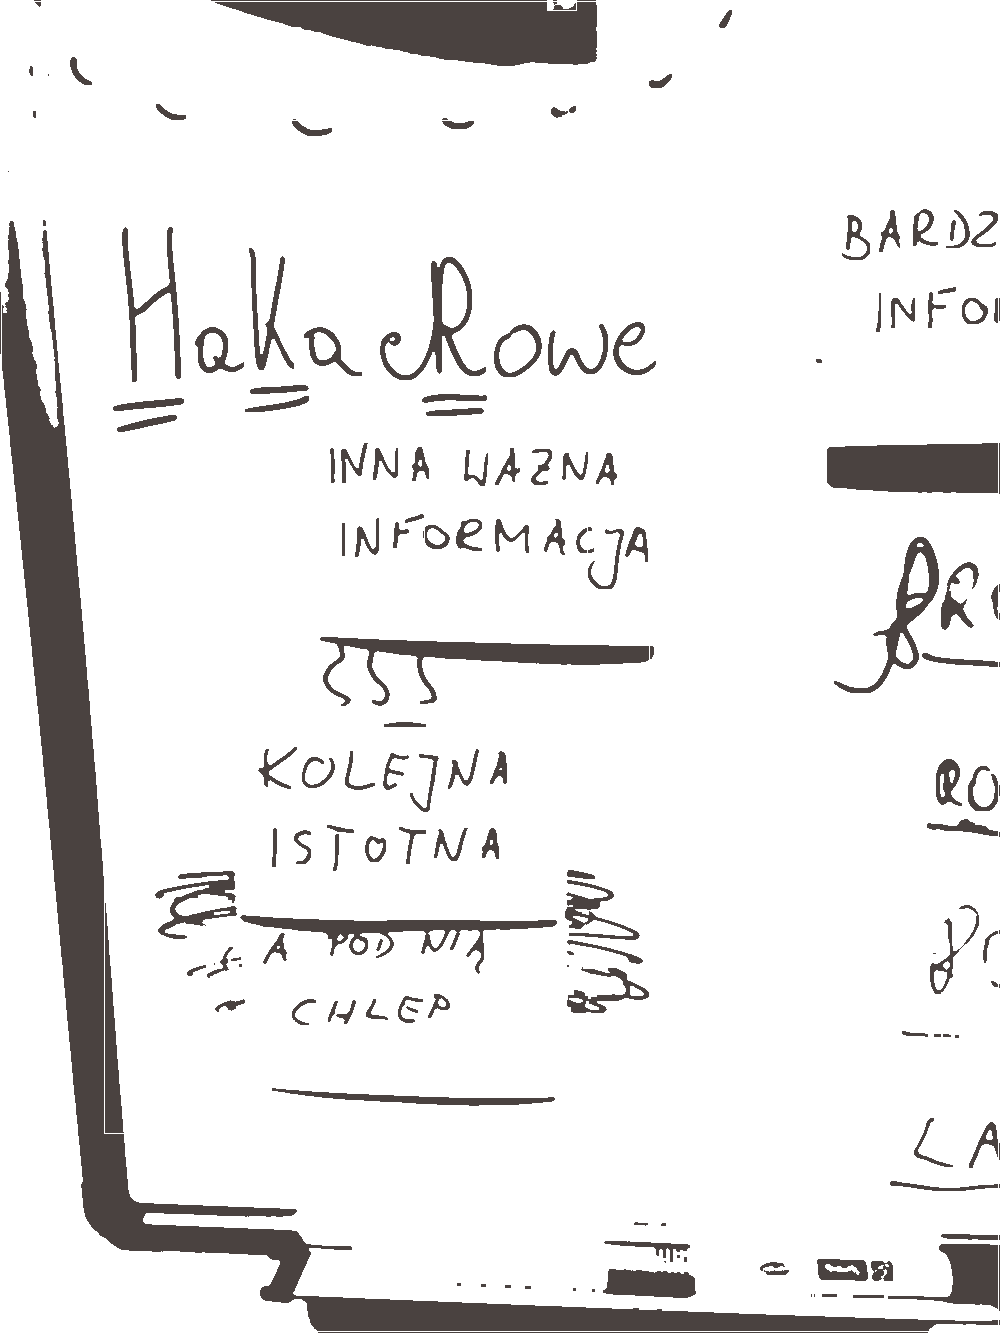 HaKaRowe
INNA WAZNA
INFORMACJA
KOLEJNA
ISTOTNA
A POD NIĄ
CHLEP
BARDZ
INFO
LA